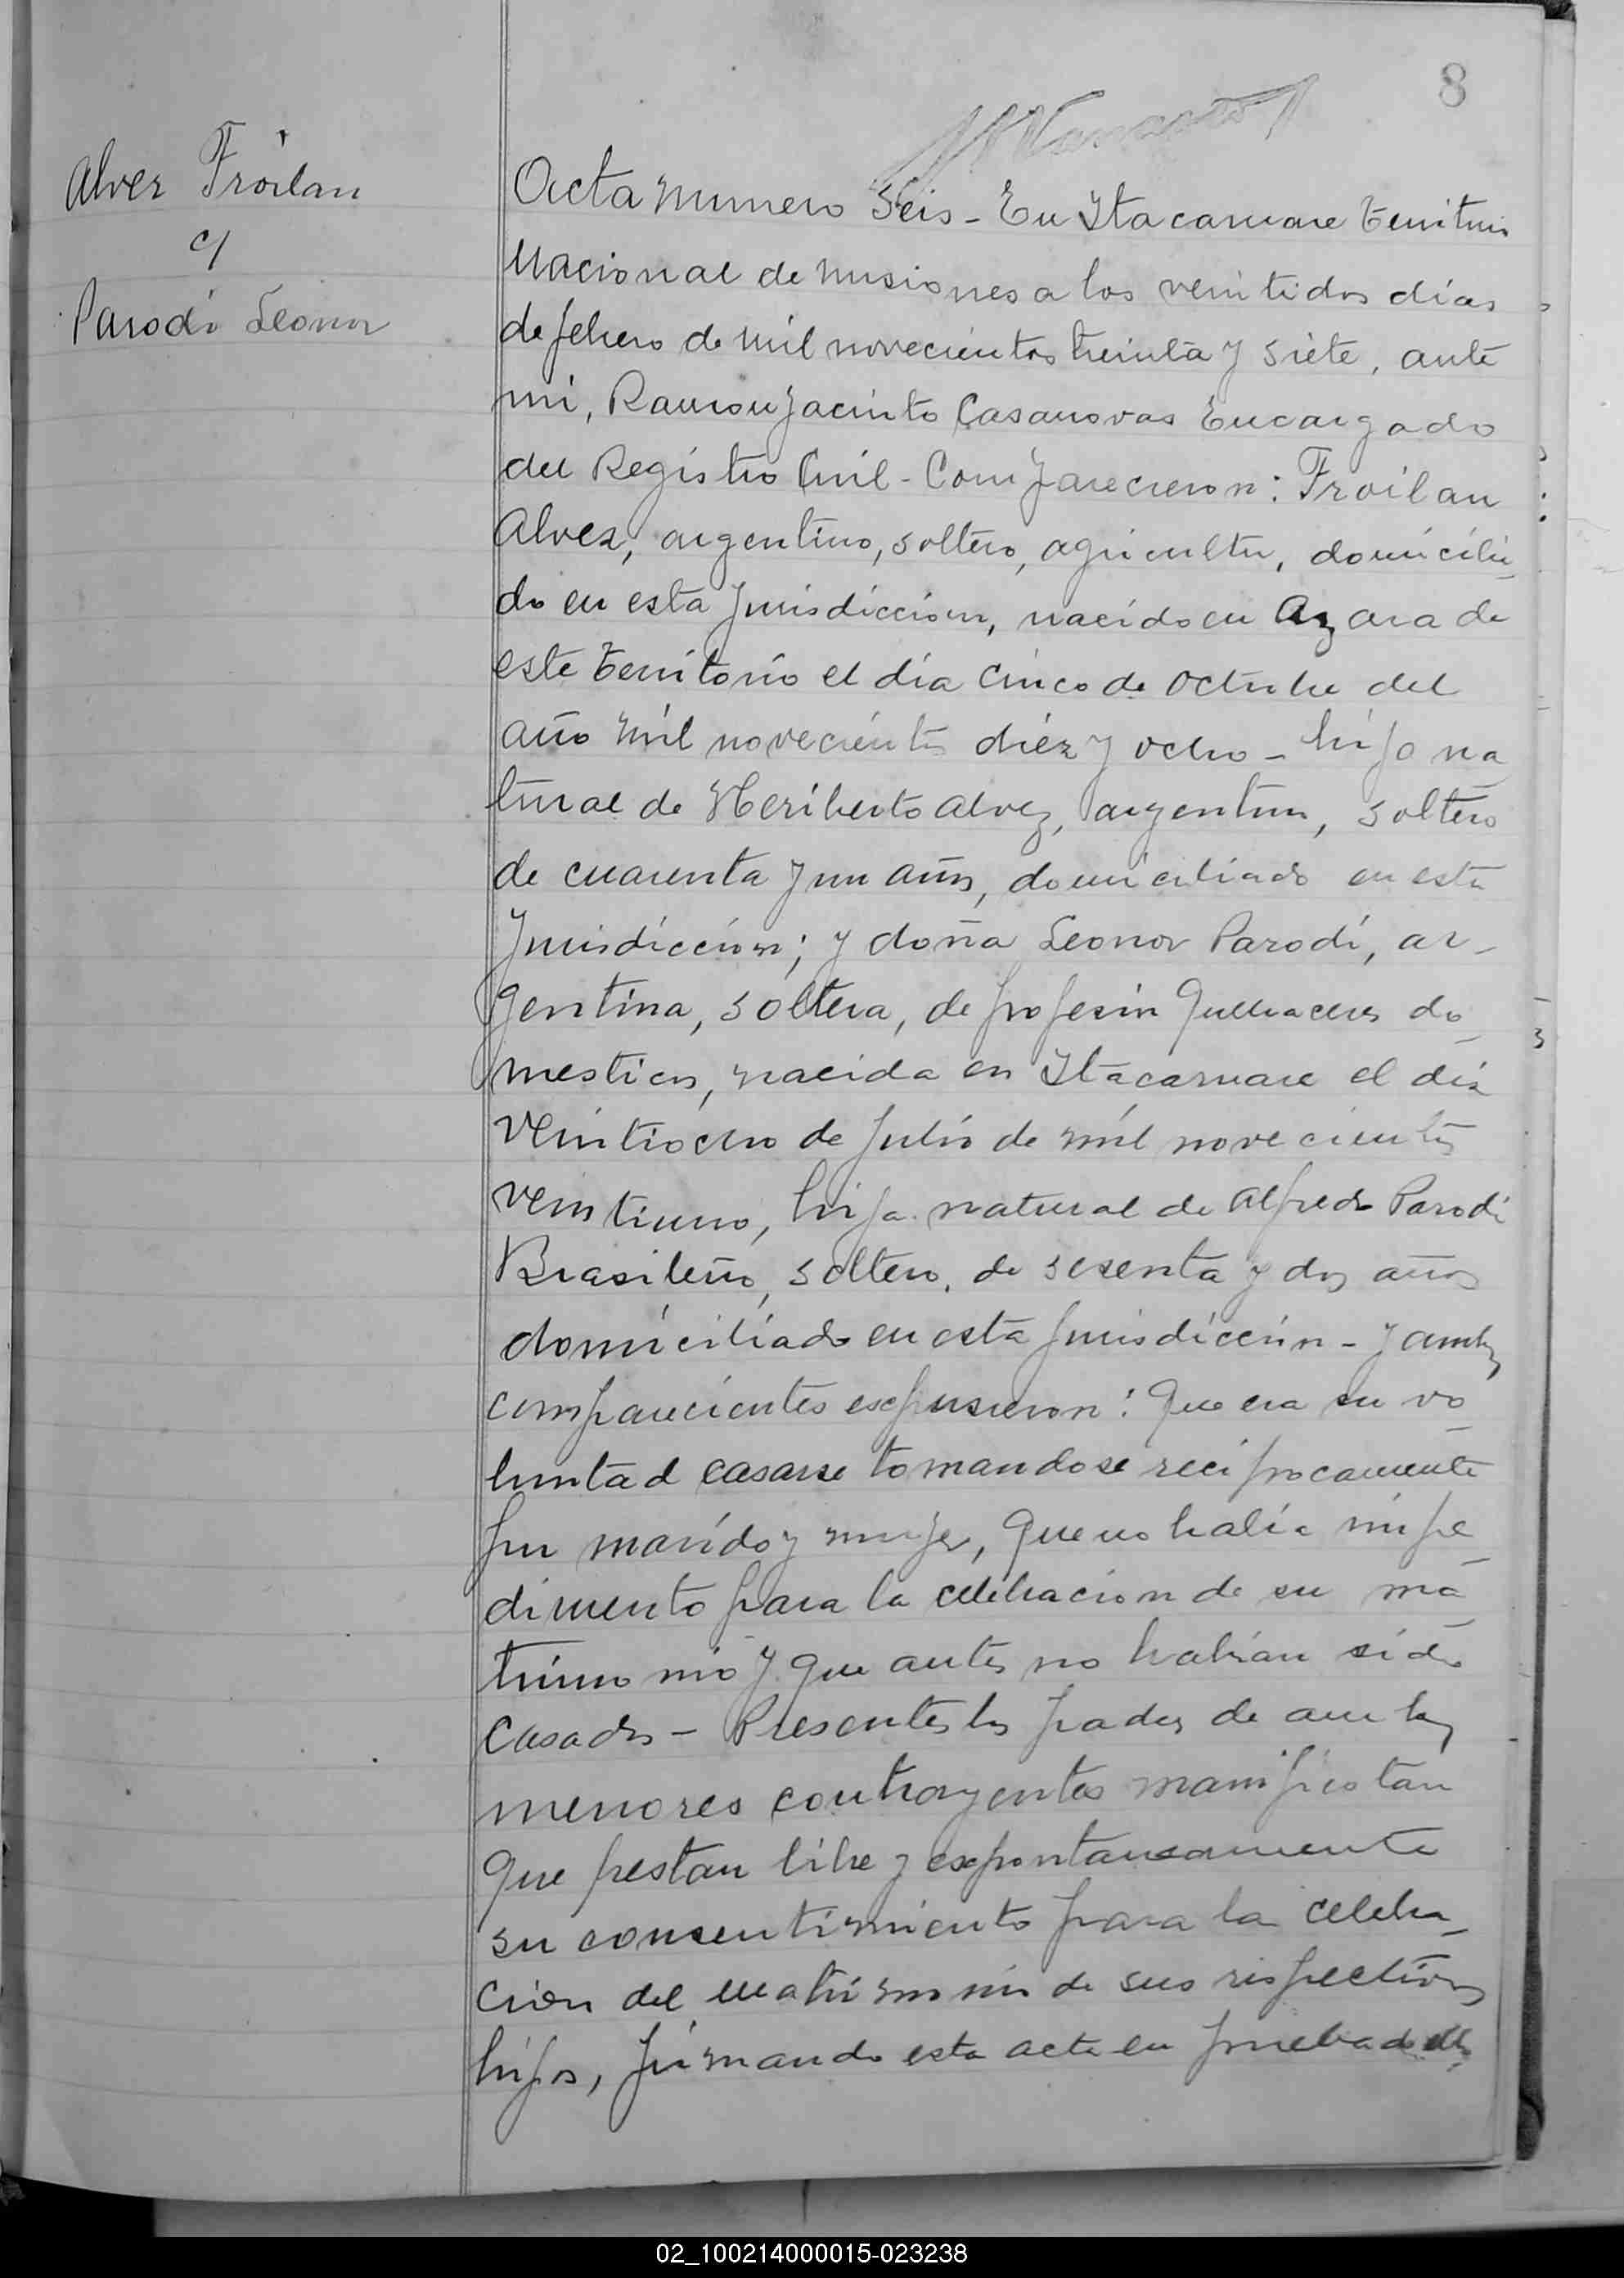 8
Alvez Froilan
c/
Parodi Leonor
Acta numero Seis - En Itacaruare Territorio
Nacional de Misiones a los veintidos dias
de febrero de mil novecientos treinta y siete, ante
mi, Ramon Jacinto Casanovas Encargado
del Registro Civil - Comparecieron: Froilan
Alvez, argentino, soltero, agricultor, domicilia
do en esta Jurisdiccion, nacido en Azara de
este territorio el dia cinco de octubre del
año mil novecientos diez y ocho - hijo na
tural de Heriberto Alvez, argentino, soltero
de cuarenta y un años, domiciliado en esta
Jurisdiccion; y doña Leonor Parodi, ar-
gentina, soltera, de profesion quehaceres do
mesticos, nacida en Itacaruare el dia
veintiocho de Julio de mil novecientos
veintiuno, hija natural de Alfredo Parodi
Brasileño, soltero, de sesenta y dos años
domiciliado en esta Jurisdiccion - y ambos
comparecientes expusieron: Que era su vo
luntad casarse tomandose reciprocamente
por marido y mujer, que no habia impe
dimento para la celebracion de su ma
trimonio y que antes no habian sido
casados - Presentes los padres de ambos
menores contrayentes manifiestan
que prestan libre y expontaneamente
su consentimiento para la celebra-
cion del matrimonio de sus respectivos
hijos, firmando esta acta en prueba de ello
02_100214000015-023238